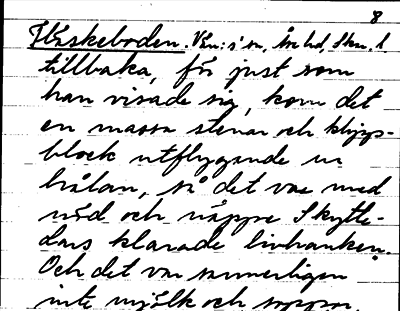 8
Fläskeboden.
tillbaka, för just som
han visade sig, kom det
en massa stenar och klipp-
block utflygande ur
hålan, så det var med
nöd och näppe Skytte-
Lars klarade livhanken.
Och det var sannerligen
inte mjölk och soppa,